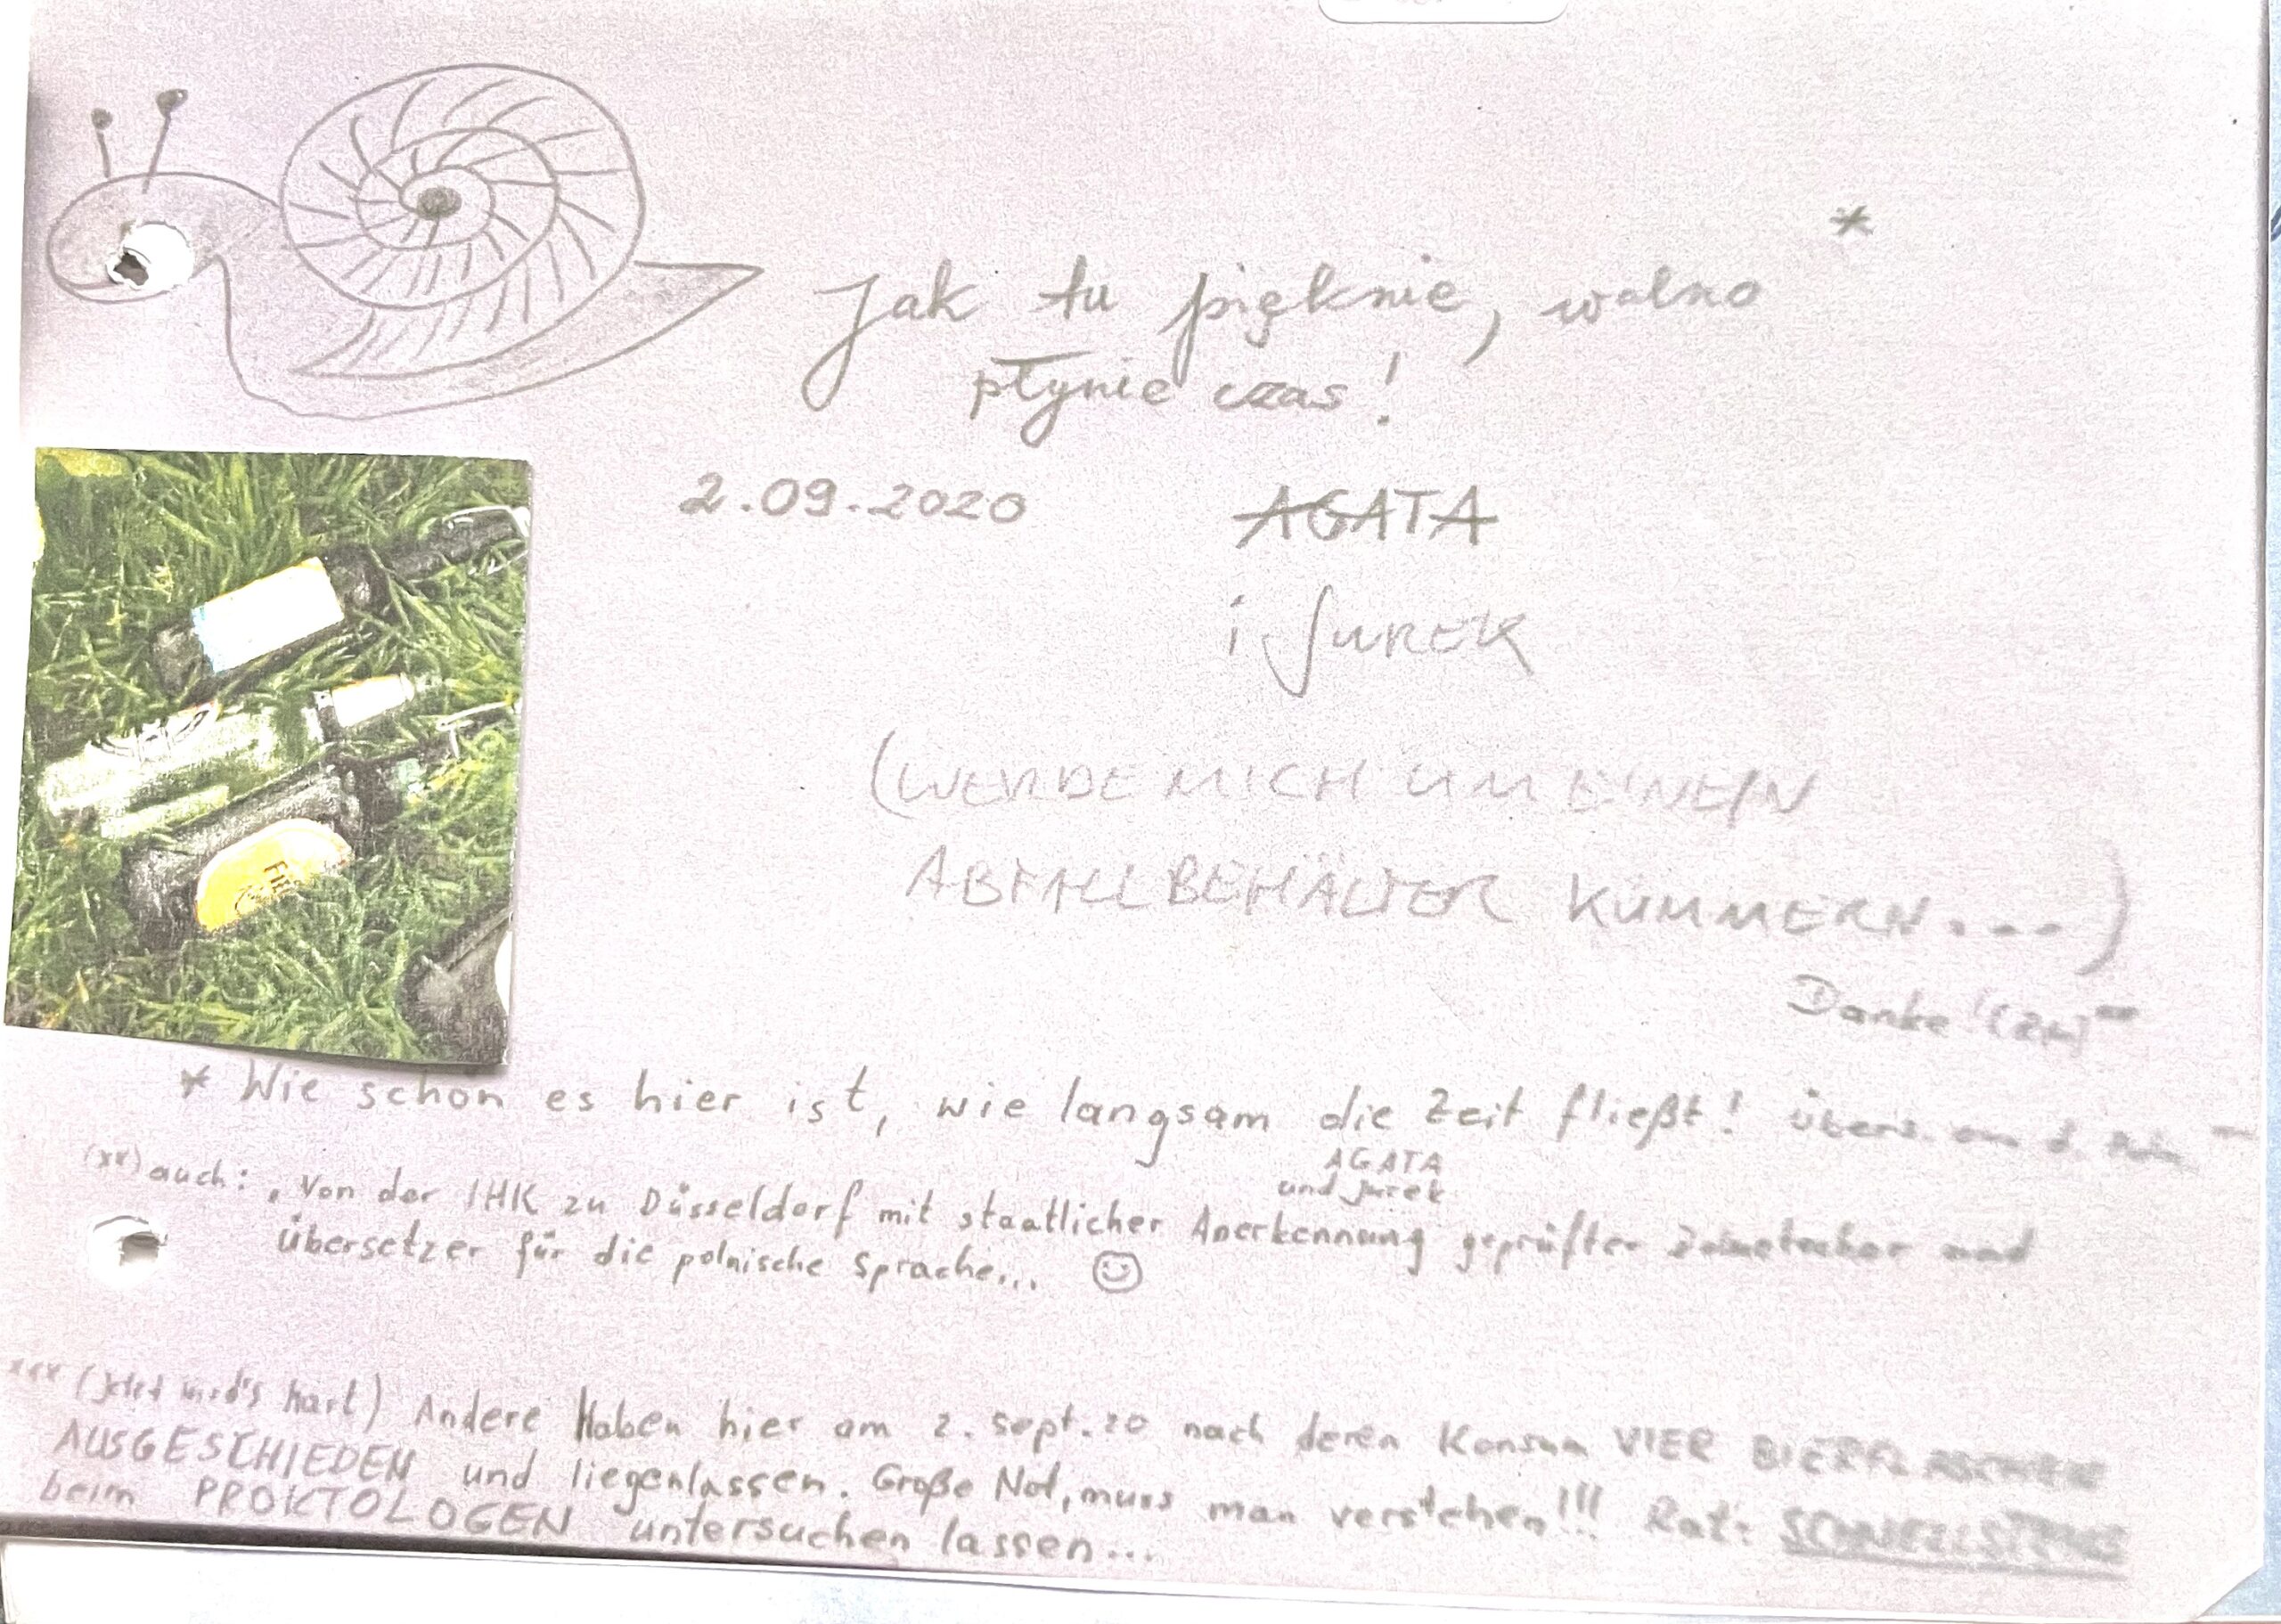 *
Jak tu pięknie, wolno
płynie czas!
2.09.2020 AGATA
i JUREK
(WERDE MICH UM EINEN
ABFALLBEHÄLTER KÜMMERN...)
Danke
* Wie schön es hier ist, wie langsam die Zeit fließt! übers.
AGATA
und Jurek
(xx) auch: „Von der IHK zu Düsseldorf mit staatlicher Anerkennung geprüfter und
Übersetzer für die polnische Sprache...
xxx (jetzt wird's hart) Andere Haben hier am 2. Sept. 20 nach deren Konsum VIER BIERFLASCHEN
AUSGESCHIEDEN und liegenlassen. Große Not, muss man verstehen!!! Rat: SCHNELLSTENS
beim PROKTOLOGEN untersuchen lassen...